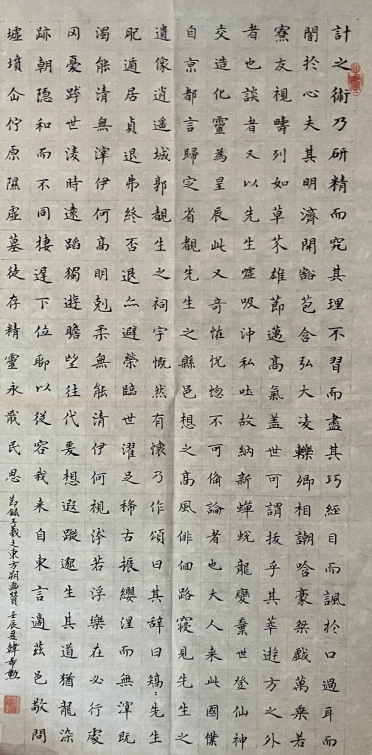 計之術乃研精而究其理不習而盡其巧經目而諷於口過耳而
闇於心夫其明濟開豁苞含弘大凌轢卿相謿哈豪桀戲萬乘若
寮友視疇列如草芥雄節邁高氣蓋世可謂拔乎其萃遊方之外
者也談者又以先生噓吸沖和吐故納新蟬蛻龍變棄世登仙神
交造化靈為星辰此又奇怪恍惚不可備論者也大人来此國僕
自京都言歸定省覩先生之縣邑想之高風俳佪路寢見先生之
遺像逍遥城郭覩生之祠宇慨然有懷乃作頌曰其辭曰矯〻先生
肥遁居貞退弗終否退亦避榮臨世濯足稀古振纓涅而無滓既
濁能清無滓伊何高明剋柔無能清伊何視洿若浮樂在必行處
冈憂跨世淩時遠蹈獨遊瞻望往代爰想遐蹤邈生其道猶龍染
跡朝隐和而不同棲遲下位聊以從容我来自東言適兹邑敬問
墟墳企佇原隰虛墓徒存精靈永戢民思
節臨王羲之東方朔畫贊 壬辰夏韓希